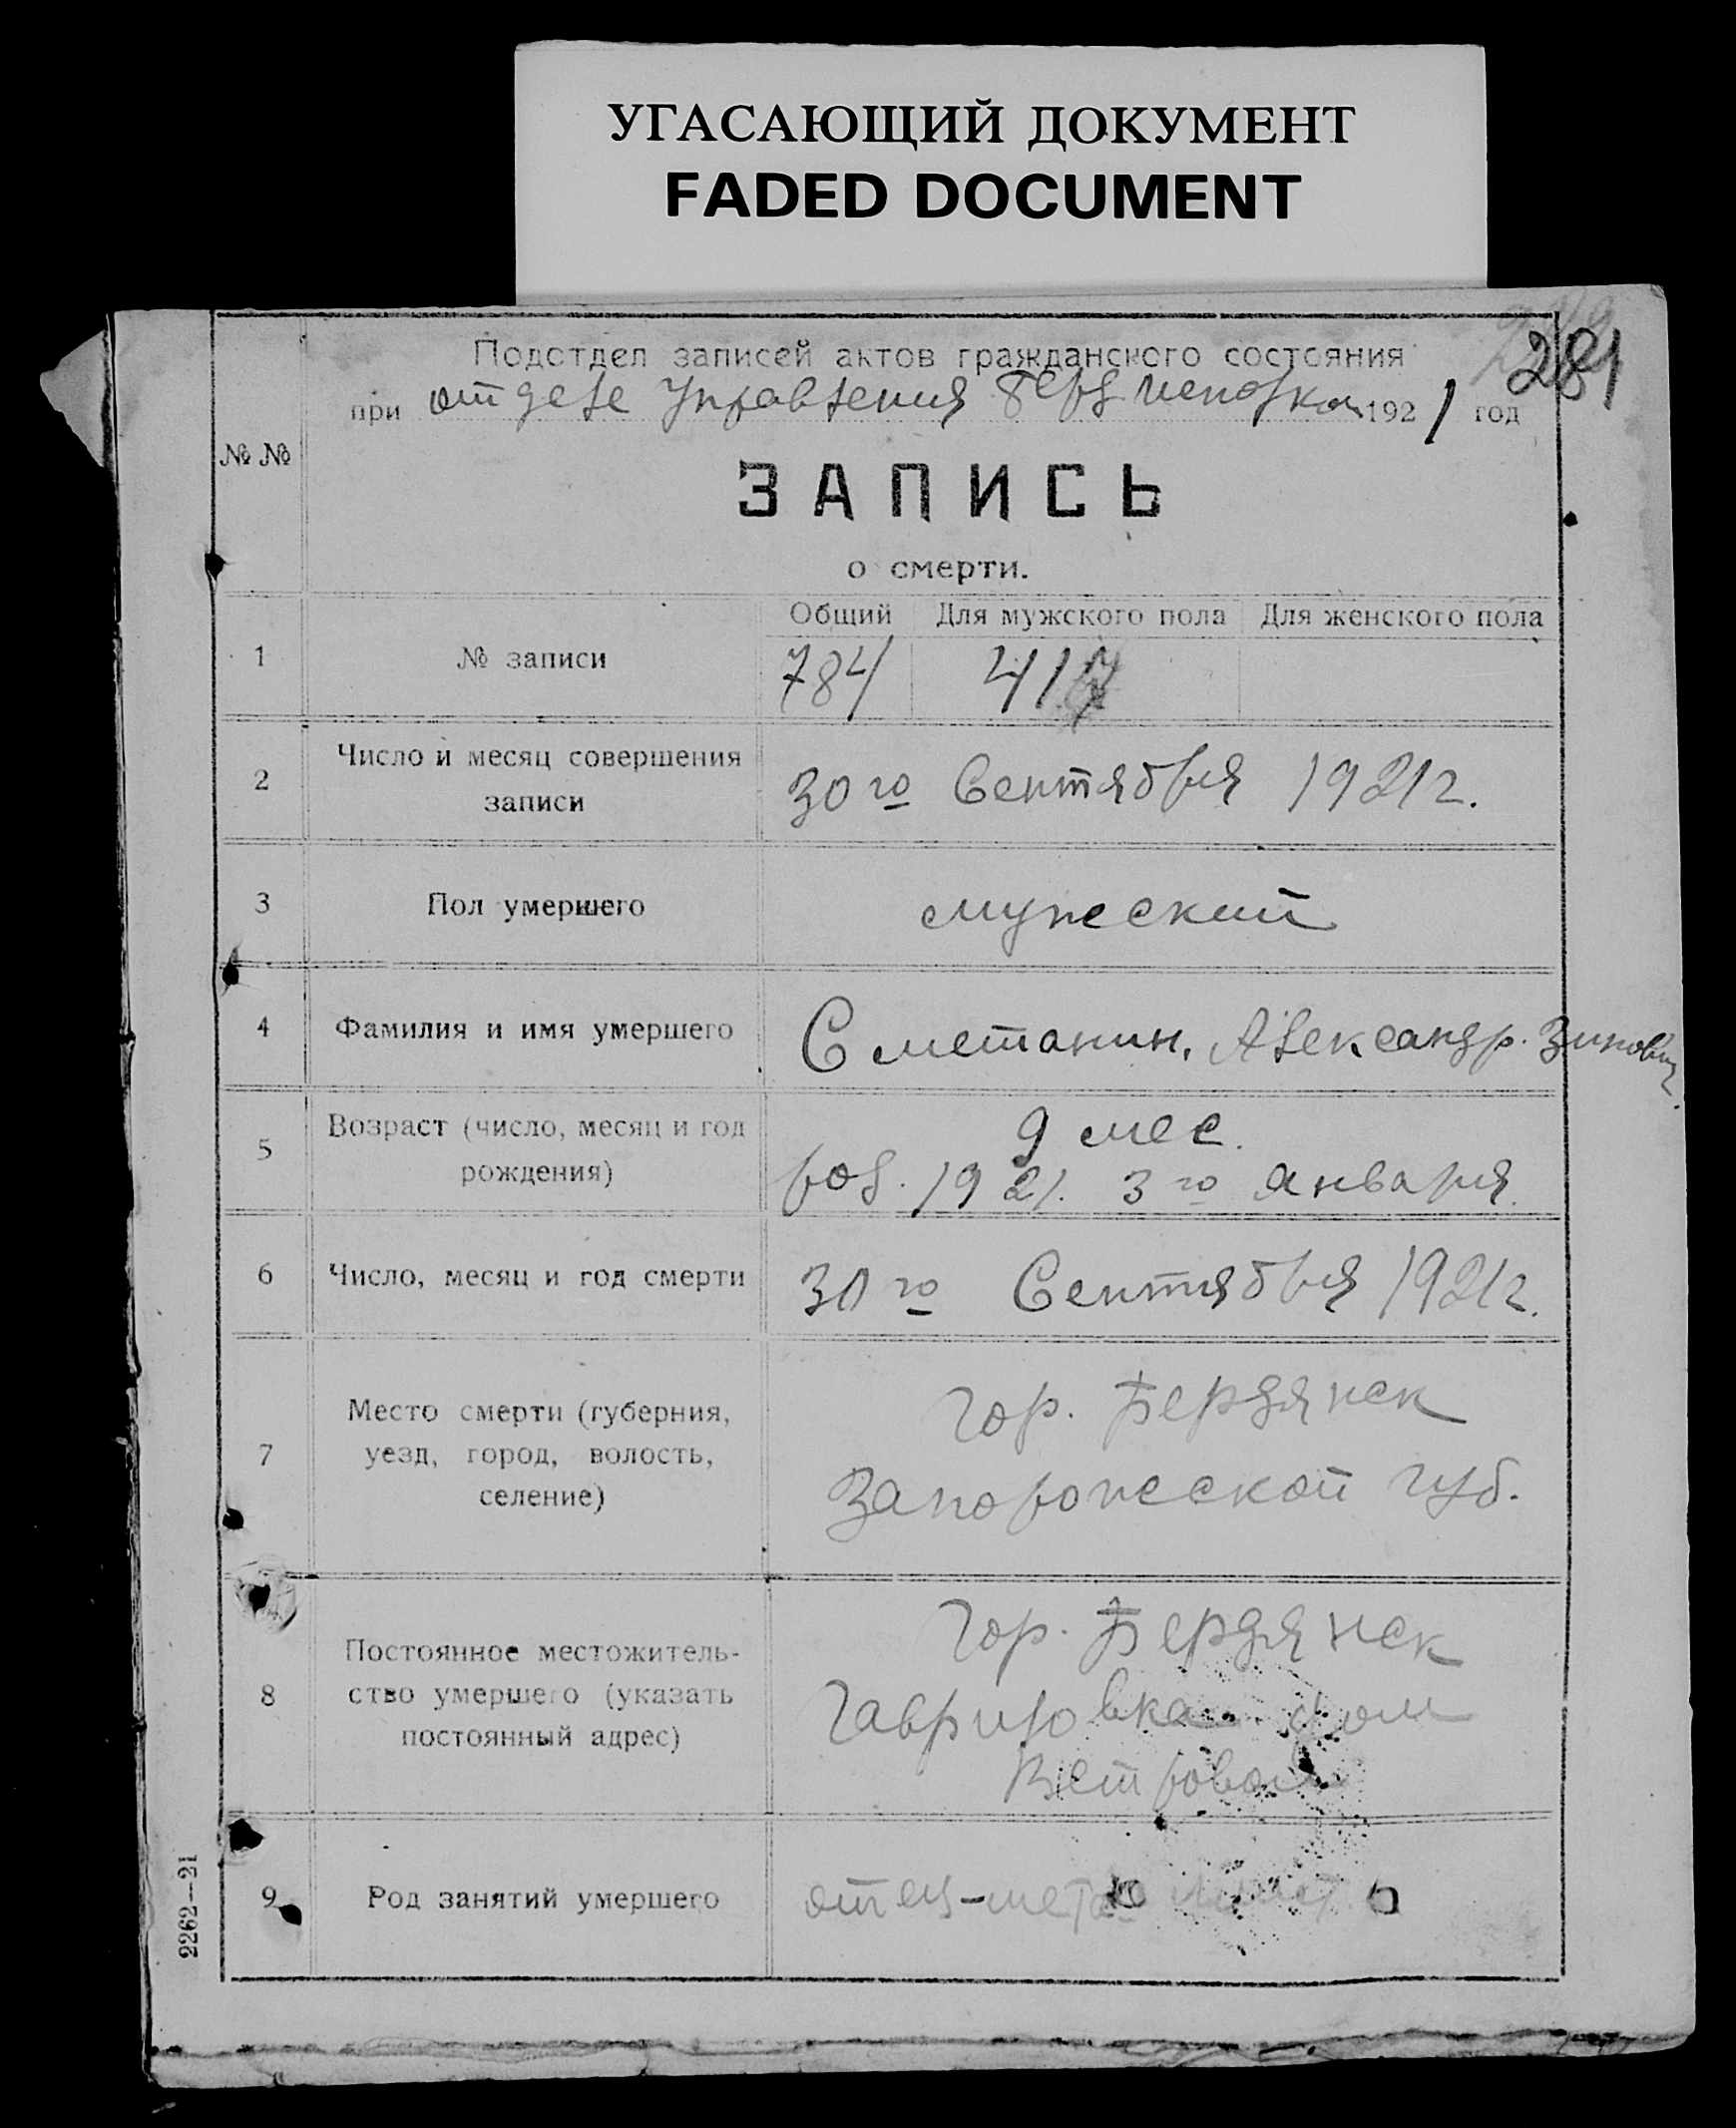 УГАСАЮЩИЙ ДОКУМЕНТ
FADED DOCUMENT
281
Подотдел записей актов гражданского состояния
при отделе Управления Берд исполком 1921 год
№ №
ЗАПИСЬ
о смерти.
Общий Для мужского пола Для женского пола
1 № записи 784 417
2 Число и месяц совершения
записи
30го Сентября 1921г.
3 Пол умершего мужеский
4 Фамилия и имя умершего Сметанин, Александр. Зинович
5 Возраст (число, месяц и год
рождения)
9 мес.
род. 1921. 3го января.
6 Число, месяц и год смерти 30го Сентября 1921г.
7 Место смерти (губерния,
уезд, город, волость,
селение)
гор. Бердянск
Запорожеской губ.
8 Постоянное местожитель-
ство умершего (указать
постоянный адрес)
гор. Бердянск
Гавриловка дом
9 Род занятий умершего отец-
2262—21